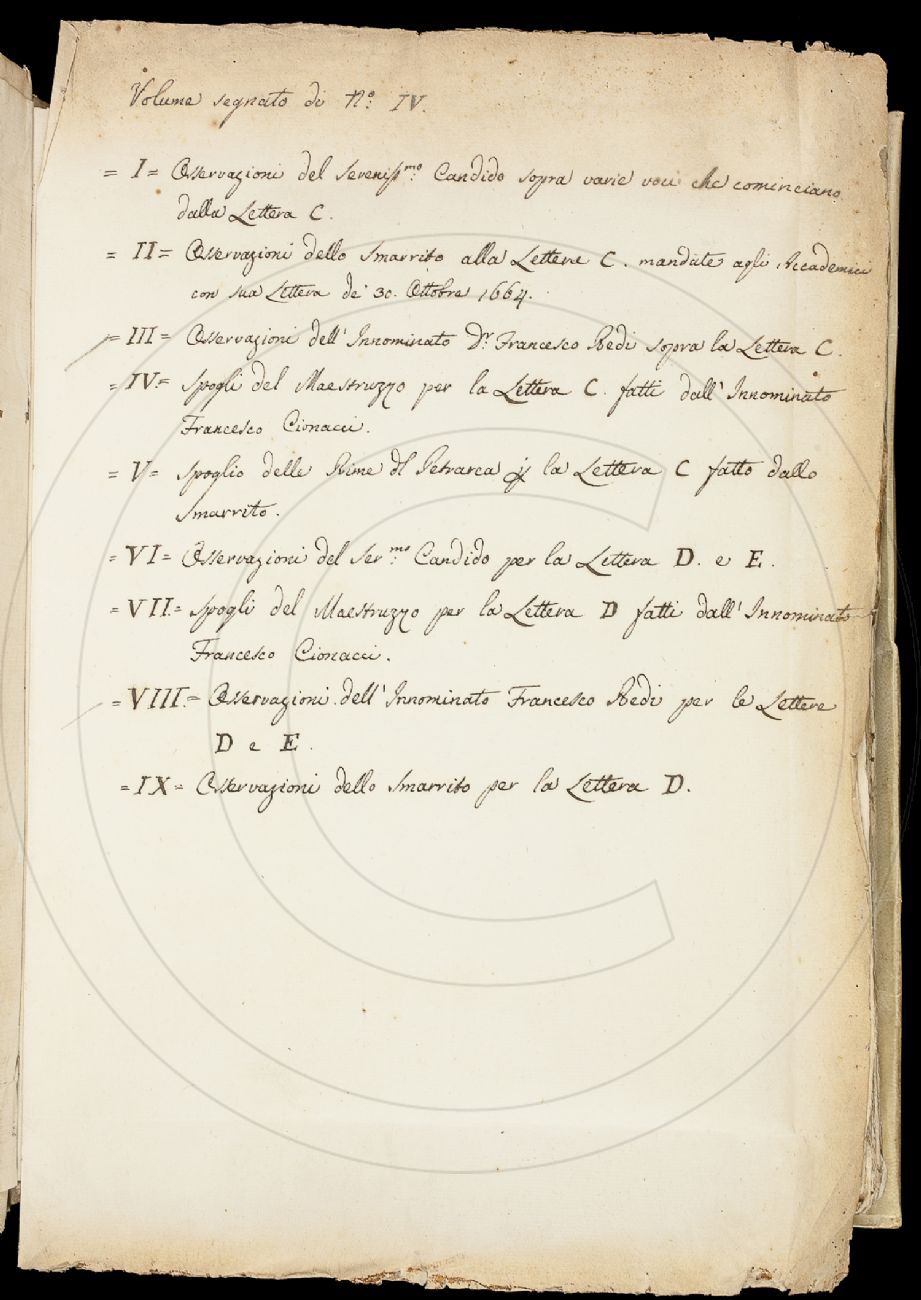 Volume segnato di N.º IV.
= I = Osservazioni del Sereniss.mo Candido sopra varie voci che cominciano
dalla Lettera C.
= II = Osservazioni dello Smarrito alla Lettera C. mandate agli Accademici
con sua Lettera de' 30. Ottobre 1664.
= III = Osservazioni dell' Innominato Dr. Francesco Redi sopra la Lettera C.
= IV = Spogli del Maestruzzo per la Lettera C. fatti dall' Innominato
Francesco Cionacci.
= V = Spoglio delle Rime dl Petrarca p la Lettera C fatto dallo
Smarrito.
= VI = Osservazioni del Ser.mo Candido per la Lettera D. e E.
= VII = Spogli del Maestruzzo per la Lettera D fatti dall' Innominato
Francesco Cionacci.
= VIII = Osservazioni dell' Innominato Francesco Redi per le Lettere
D e E.
= IX = Osservazioni dello Smarrito per la Lettera D.